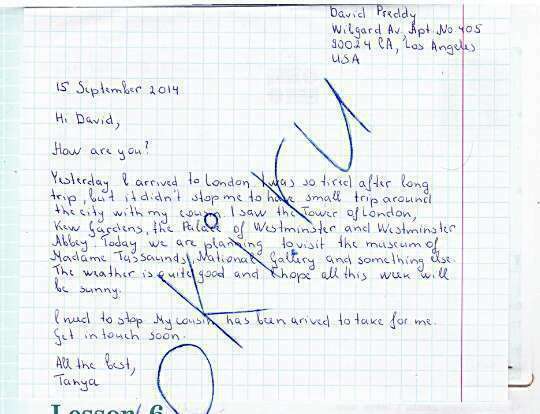 David Preddy
Wilgard Av, Apt. No 405
90024 CA, Los Angeles
USA
15 September 2014
Hi David,
How are you?
Yesterday I arrived to London I was so tired after long
trip, but it didn't stop me to have small trip around
the city with my cousin. I saw the Tower of London,
Kew Gardens, the Palace of Westminster and Westminster
Abbey. Today we are planning to visit the museum of
Madame Tassaunds, National Gallery and something else.
The weather is quite good and I hope all this week will
be sunny.
I need to stop. My cousin has been arived to take for me.
Get in touch soon.
All the best,
Tanya
Lesson 6